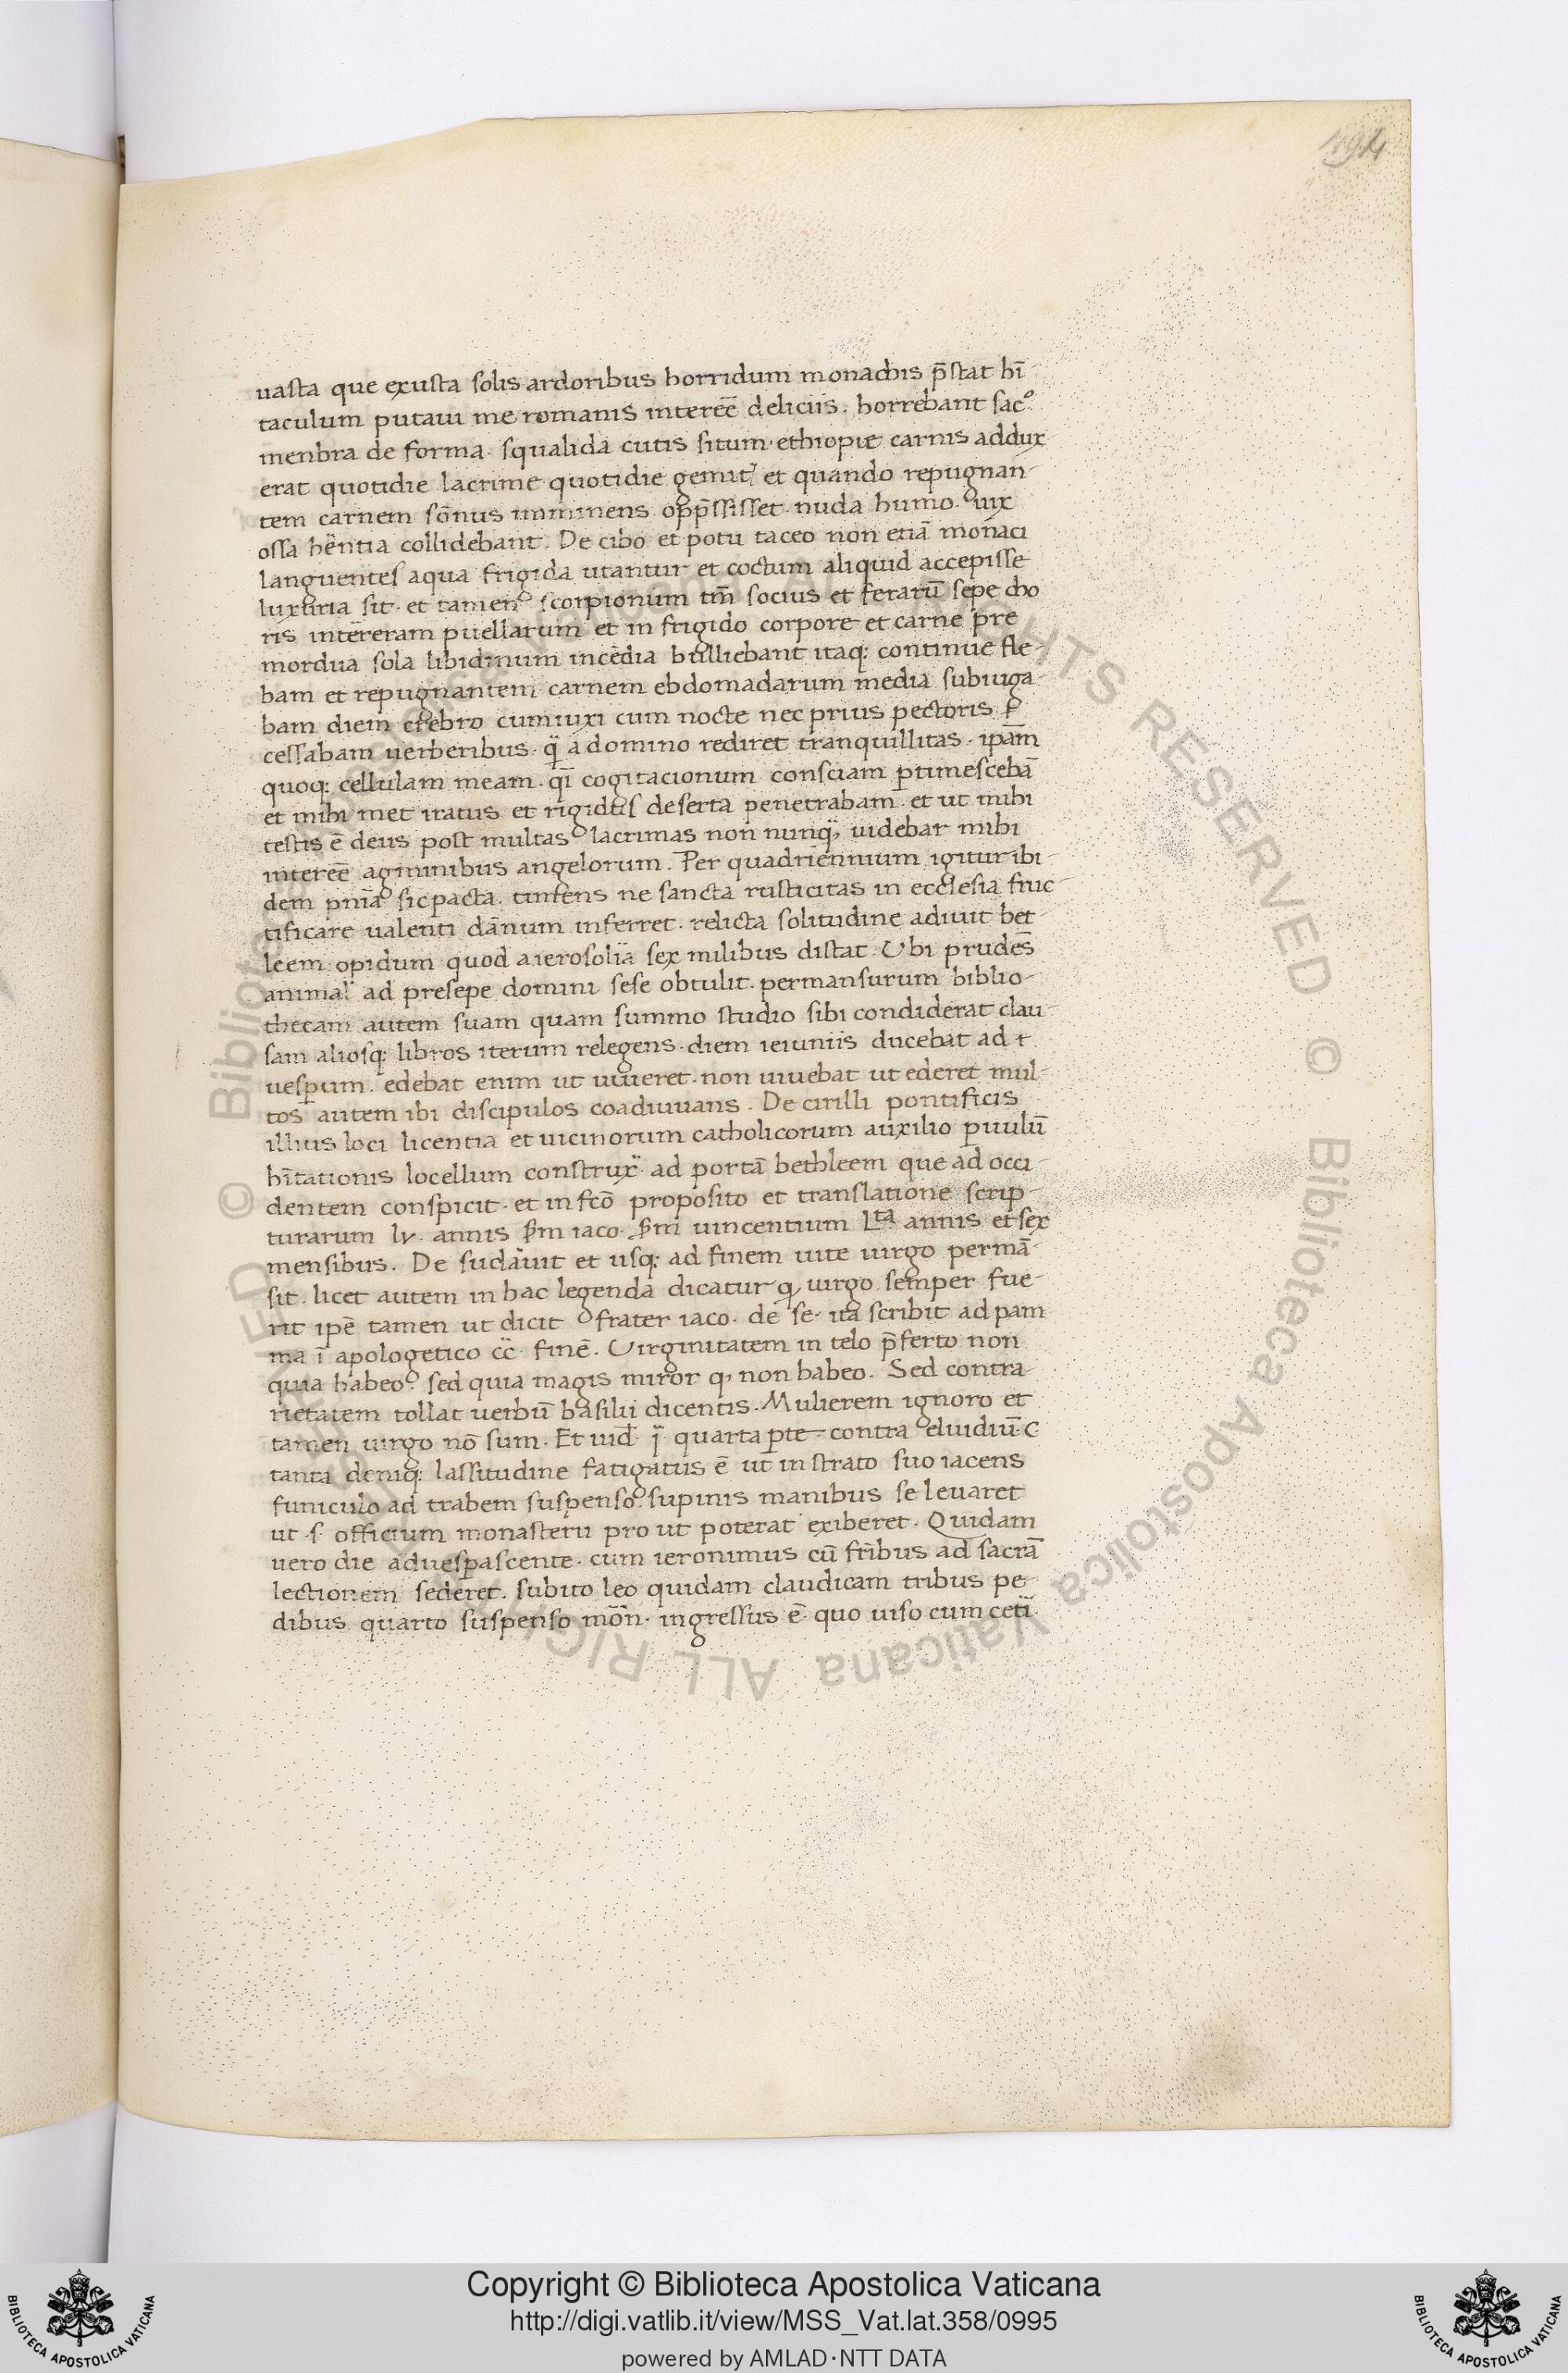 194
uasta que exusta solis ardoribus horridum monachis p̄stat hī-
taculum putaui me romanis intereē deliciis. horrebant sacº
menbra de forma. squalida cutis situm. ethiopie carnis addux-
erat quotidie lacrime quotidie gemitꝰ et quando repugnan-
tem carnem sōnus imminens opp̄ssisset. nuda humo. uix
ossa hēntia collidebant. De cibo et potu taceo non etiā monaci
languentes aqua frigida utantur et coctum aliquid accepisse
luxuria sit. et tamen scorpionum tm̄ socius et ferarū sepe cho
ris intereram puellarum et in frigido corpore et carne pre
mordua sola libidinum incēdia bulliebant itaq; continue fle-
bam et repugnantem carnem ebdomadarum media subiuga-
bam diem crebro cumiuxi cum nocte nec prius pectoris
cessabam uerberibus. q̈ a domino rediret tranquillitas. ipam̄
quoq; cellulam meam. qī cogitacionum consciam ꝑtimescebā
et mihi met iratus et rigidus deserta penetrabam. et ut mihi
testis ē deus post multas lacrimas non nunq̈ uidebar mihi
intereē agminibus angelorum. Per quadriennium igitur ibi-
dem pn̄ia sic pacta. timens ne sancta rusticitas in ecclesia fruc-
tificare ualenti dānum inferret. relicta solitudine adiuit bet-
leem opidum quod a ierosolïa sex milibus distat. Ubi prudēs
animal ad presepe domini sese obtulit. permansurum biblio-
thecam autem suam quam summo studio sibi condiderat clau-
sam aliosq; libros iterum relegens. diem ieiuniis ducebat ad
uesꝑum. edebat enim ut uiueret. non uiuebat ut ederet mul-
tos autem ibi discipulos coadiuuans. De cirilli pontificis
illius loci licentia et uicinorum catholicorum auxilio ꝑuulū
hītationis locellum construẍ ad portā bethleem que ad occi-
dentem conspicit. et in scō proposito et translatione scrip-
turarum lv. annis s̄m iaco. s̄m uincentium Lta annis et sex
mensibus. De sudauit et usq; ad finem uite uirgo permā-
sit. licet autem in hac legenda dicatur ꝙ uirgo semper fue-
rit ipē tamen ut dicit frater iaco. de se. ita scribit ad pam
ma ī apologetico cc̈ finē. Uirginitatem in telo p̄ferto non
quia habeo. sed quia magis miror ꝙ non habeo. Sed contra-
rietatem tollat uerbū basilii dicentis. Mulierem ignoro et
tamen uirgo nō sum. Et uid̄ ï quarta ꝑte contra eluidiū. C
tanta deniq; lassitudine fatigatus ē ut in strato suo iacens
funiculo ad trabem suspenso. supinis manibus se leuaret
ut .s. officium monasterii pro ut poterat exiberet. Quidam
uero die aduesꝑascente. cum ieronimus cū fribus ad sacrā
lectionem sederet. subito leo quidam claudicam tribus pe-
dibus quarto suspenso mōn. ingressus ē. quo uiso cum cetï
© Biblioteca Apostolica Vaticana ALL RIGHTS RESERVED
Copyright © Biblioteca Apostolica Vaticana
http://digi.vatlib.it/view/MSS_Vat.lat.358/0995
powered by AMLAD·NTT DATA
BIBLIOTECA APOSTOLICA VATICANA
BIBLIOTECA APOSTOLICA VATICANA